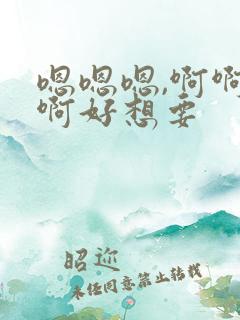 嗯嗯嗯,啊啊
啊好想要
昭迩
未经同意禁止转载